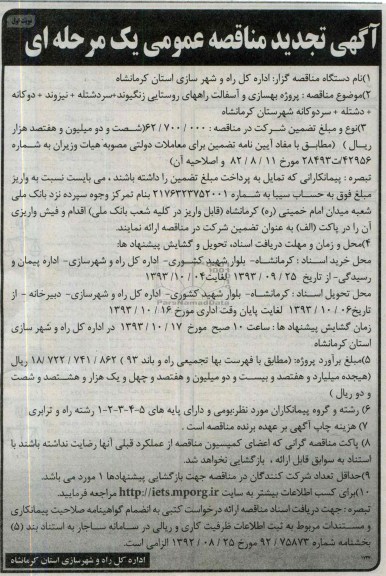 نوبت اول
آگهی تجدید مناقصه عمومی یک مرحله ای
۱)نام دستگاه مناقصه گزار: اداره کل راه و شهر سازی استان کرمانشاه
۲)موضوع مناقصه : پروژه بهسازی و آسفالت راههای روستایی زنگیوند+سردشتله + نیزوند + دوکانه
+ دشتله + سردوکانه شهرستان کرمانشاه
۳)نوع و مبلغ تضمین شرکت در مناقصه : ۶۲/۷۰۰/۰۰۰(شصت و دو میلیون و هفتصد هزار
ریال ) (مطابق با مفاد آیین نامه تضمین برای معاملات دولتی مصوبه هیات وزیران به شماره
۴۲۹۵۶/ت۲۸۴۹۳ مورخ ۱۱ / ۸ / ۸۲ و اصلاحیه آن)
تبصره : پیمانکارانی که تمایل به پرداخت مبلغ تضمین را داشته باشند ، می بایست نسبت به واریز
مبلغ فوق به حساب سیبا به شماره ۲۱۷۶۳۲۳۷۵۲۰۰۱ بنام تمرکز وجوه سپرده نزد بانک ملی
شعبه میدان امام خمینی (ره) کرمانشاه (قابل واریز در کلیه شعب بانک ملی) اقدام و فیش واریزی
آن را در پاکت (الف) به عنوان تضمین شرکت در مناقصه ارائه نمایند.
۴)محل و زمان و مهلت دریافت اسناد، تحویل و گشایش پیشنهاد ها:
محل خرید اسناد : کرمانشاه- بلوار شهید کشوری- اداره کل راه و شهرسازی- اداره پیمان و
رسیدگی- از تاریخ ۲۵ / ۰۹ / ۱۳۹۳ لغایت۰۴ / ۱۰ / ۱۳۹۳
محل تحویل اسناد : کرمانشاه- بلوار شهید کشوری- اداره کل راه و شهرسازی- دبیرخانه - از
تاریخ۰۶ / ۱۰ / ۱۳۹۳ لغایت پایان وقت اداری مورخ ۱۶ / ۱۰ / ۱۳۹۳
زمان گشایش پیشنهاد ها : ساعت ۱۰ صبح مورخ ۱۷ / ۱۰ / ۱۳۹۳ در اداره کل راه و شهر سازی
استان کرمانشاه
۵)مبلغ برآورد پروژه: (مطابق با فهرست بها تجمیعی راه و باند ۹۳ ) ۸۶۲ / ۷۴۱ / ۷۲۲ / ۱۸ ریال
(هیجده میلیارد و هفتصد و بیست و دو میلیون و هفتصد و چهل و یک هزار و هشتصد و شصت
و دو ریال )
۶) رشته و گروه پیمانکاران مورد نظر:بومی و دارای پایه های ۵-۴-۳-۲-۱ رشته راه و ترابری
۷) هزینه چاپ آگهی بر عهده برنده مناقصه است .
۸) پاکت مناقصه گرانی که اعضای کمیسیون مناقصه از عملکرد قبلی آنها رضایت نداشته باشند با
استناد به سوابق قابل ارائه ، بازگشایی نخواهد شد.
۹)حداقل تعداد شرکت کنندگان در مناقصه جهت بازگشایی پیشنهادها ۱ مورد می باشد.
۱۰)برای کسب اطلاعات بیشتر به سایت http://iets.mporg.ir مراجعه فرمایید.
تبصره : جهت دریافت اسناد مناقصه ارائه درخواست کتبی به انضمام گواهینامه صلاحیت پیمانکاری
و مستندات مربوط به ثبت اطلاعات ظرفیت کاری و ریالی در سامانه ساجار به استناد بند (۵)
بخشنامه شماره ۷۵۸۷۳ / ۹۲ مورخ ۲۵ / ۰۸ / ۱۳۹۲ الزامی است.
اداره کل راه و شهرسازی استان کرمانشاه